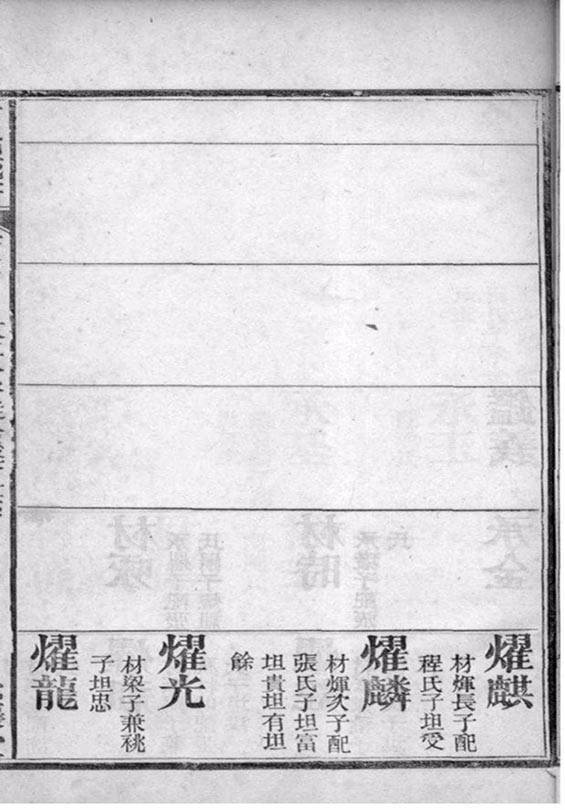 耀麒
材煇長子配
程氏子坦受
耀麟
材煇次子配
張氏子坦富
坦貴坦有坦
餘
耀光
材梁子兼祧
子坦忠
耀龍